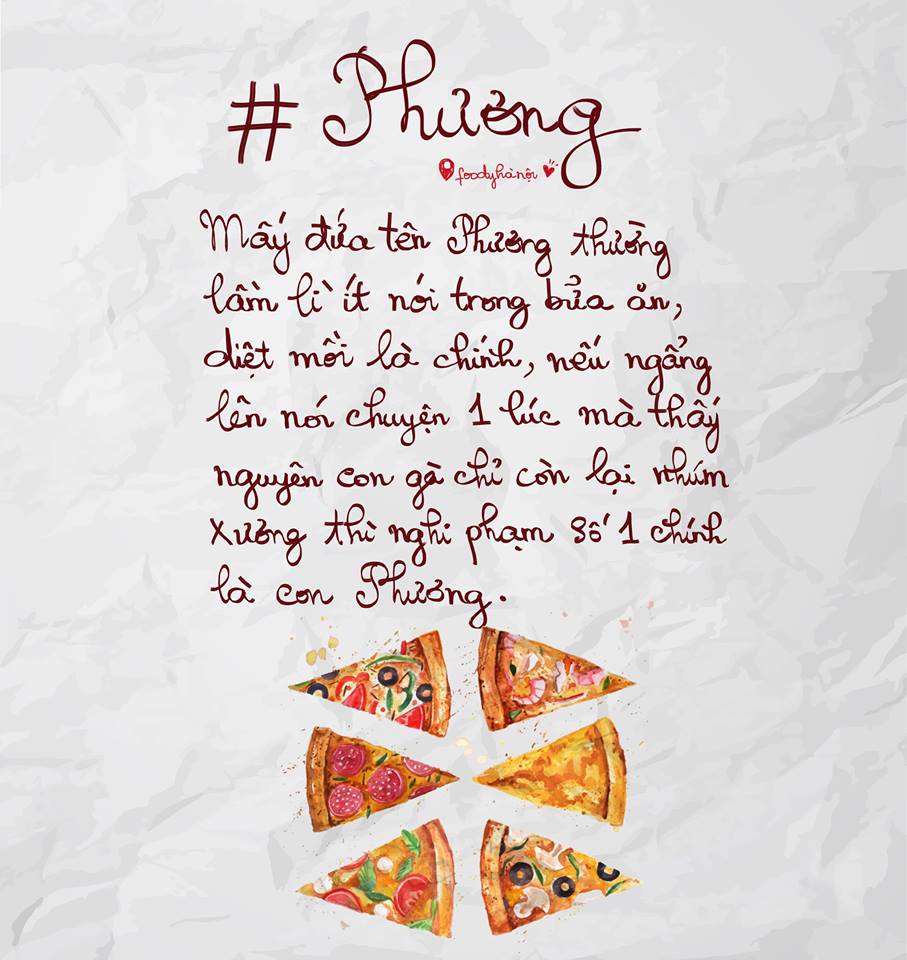 #Phương
foodyhànội
Mấy đứa tên Phương thường
lầm lì ít nói trong bửa ăn,
diệt mồi là chính, nếu ngẩng
lên nói chuyện 1 lúc mà thấy
nguyên con gà chỉ còn lại nhúm
xương thì nghi phạm số 1 chính
là con Phương.